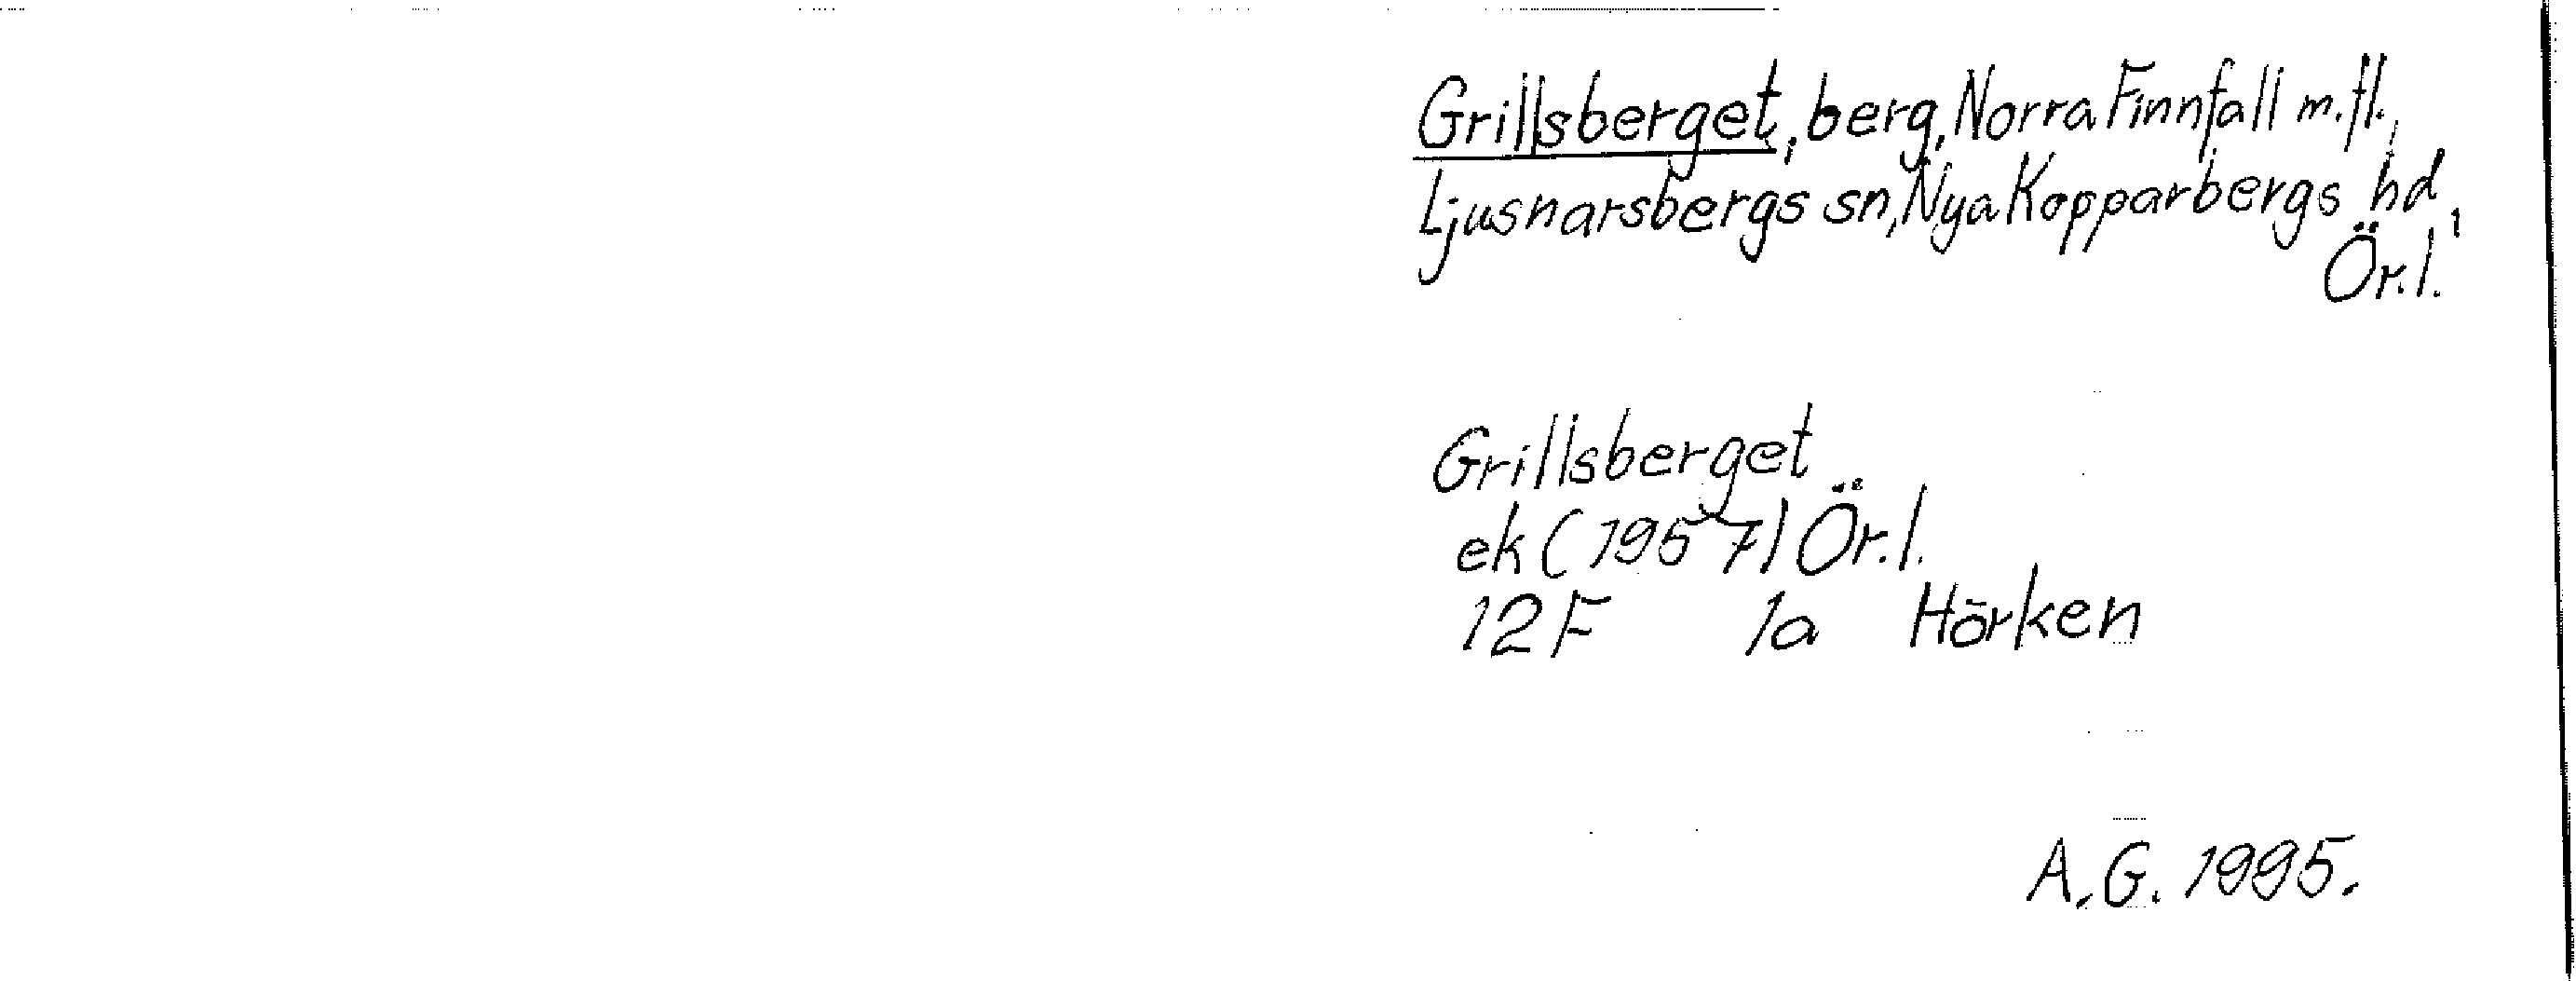 Grillsberget, berg, Norra Finnfall m.fl.,
Ljusnarsbergs sn, Nya Kopparbergs hd,
Ör.l.
Grillsberget
ek (1957) Ör.l.
12F 1a Hörken
A.G. 1995.